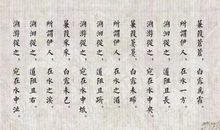 蒹葭蒼蒼，白露為霜。
所謂伊人，在水一方。
溯洄從之，道阻且長。
溯游從之，宛在水中央。
蒹葭萋萋，白露未晞。
所謂伊人，在水之湄。
溯洄從之，道阻且躋。
溯游從之，宛在水中坻。
蒹葭采采，白露未已。
所謂伊人，在水之涘。
溯洄從之，道阻且右。
溯游從之，宛在水中沚。